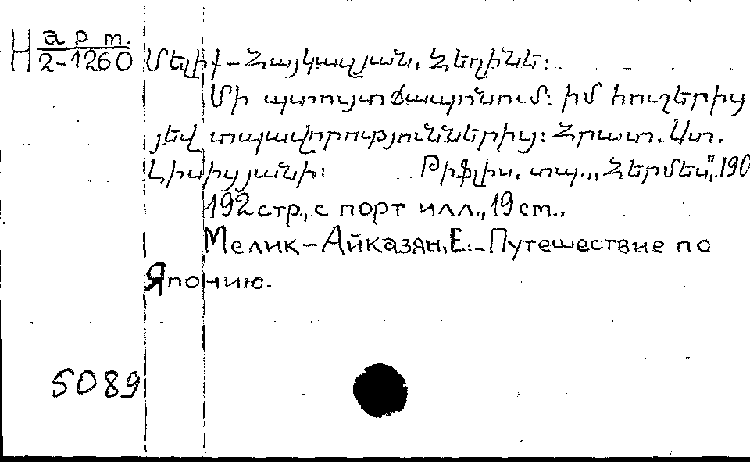 Н арт.
2-1260 Մելիք-Հայկազյան, Հեղինե:
Մի պտույտ Ճապոնում: Իմ հուշերից
յեվ տպավորություններից: Հրատ. Ստ.
Լիսիցյանի: Թիֆլիս, տպ. „Հերմես", 190
192 стр., с порт илл., 19 ст.,
Мелик-Айказян, Е.-Путешествие по
Японию.
5089